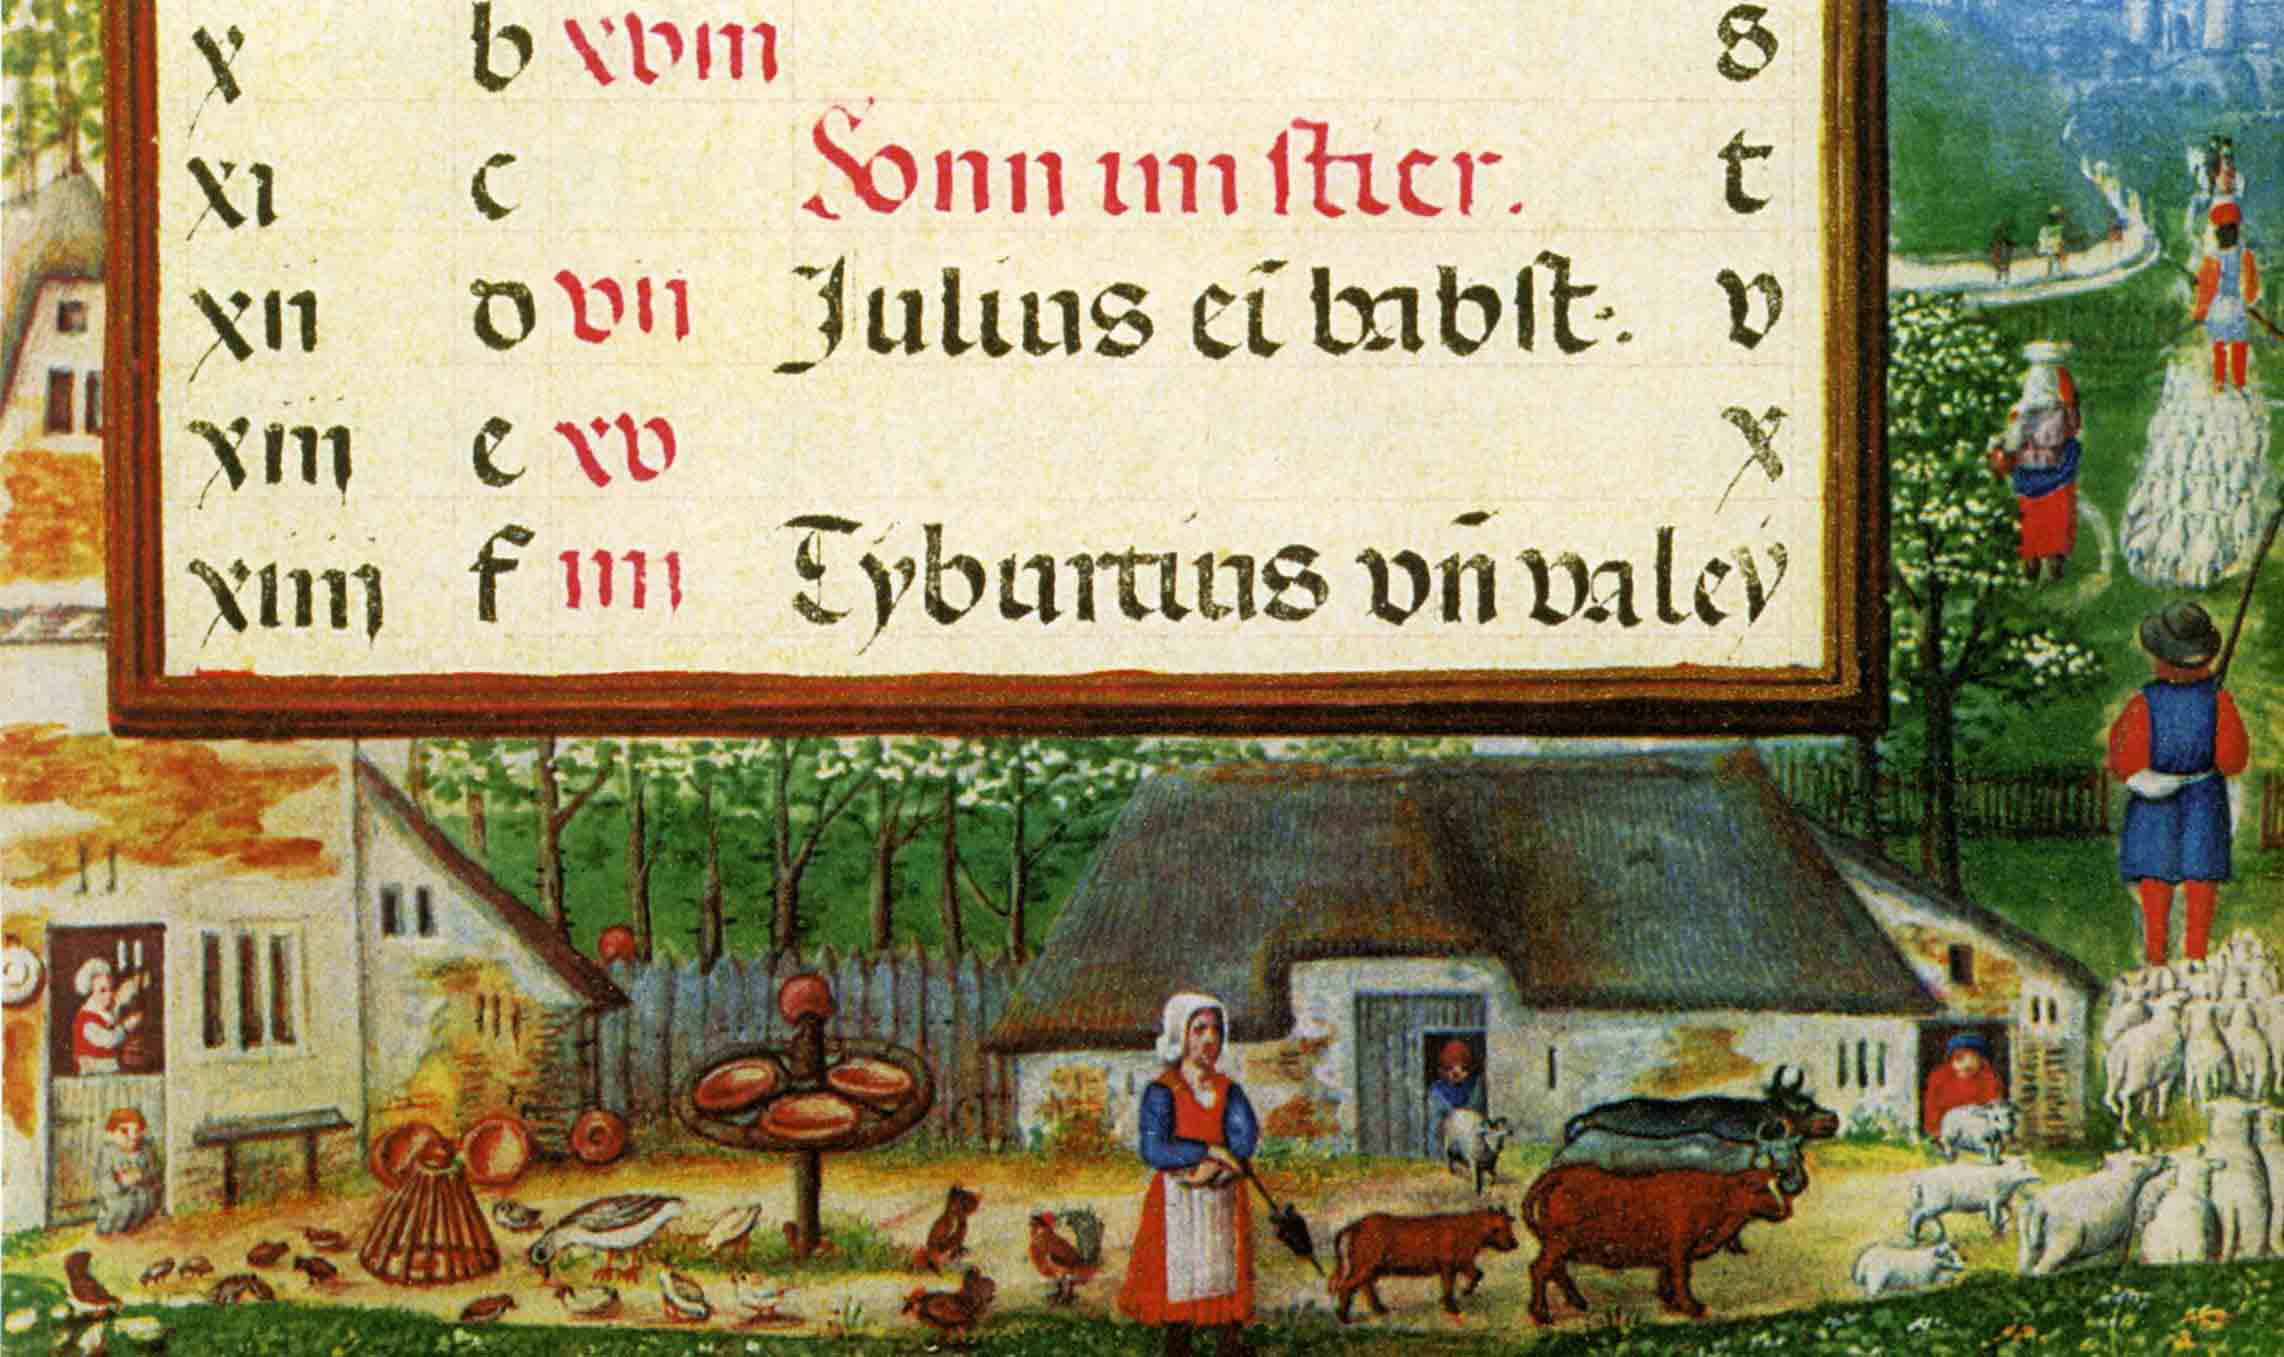 x b xviii s
xi c Sonn im stier. t
xii d vii Julius ei̅ babst. v
xiii e xv x
xiiii f iiii Tyburtius vn̅ valey